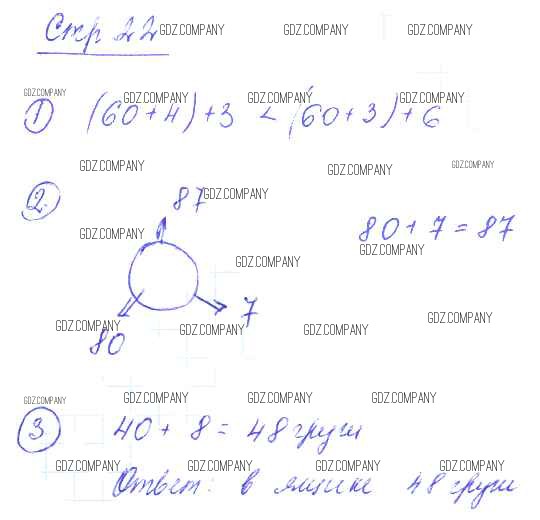 Стр 22
GDZ.COMPANY GDZ.COMPANY GDZ.COMPANY
GDZ.COMPANY GDZ.COMPANY GDZ.COMPANY GDZ.COMPANY
1 (60+4)+3 < (60+3)+6
GDZ.COMPANY GDZ.COMPANY GDZ.COMPANY
2. 87 GDZ.COMPANY
GDZ.COMPANY 80+7=87
GDZ.COMPANY
GDZ.COMPANY
7
GDZ.COMPANY GDZ.COMPANY GDZ.COMPANY GDZ.COMPANY
80
GDZ.COMPANY GDZ.COMPANY GDZ.COMPANY GDZ.COMPANY
3. 40+8=48 груш
GDZ.COMPANY GDZ.COMPANY GDZ.COMPANY GDZ.COMPANY
Ответ: в ящике 48 груш